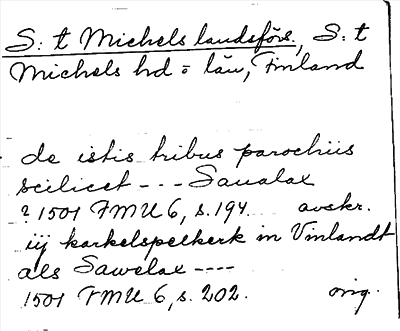 S:t Michels landsförs., S:t
Michels hd o län, Finland
de istis tribus parochiis
scilicet --- Saualax
? 1501 FMU 6, s. 194. avskr.
iij karkelspelkerk in Vinlandt
als Sawelax ----
1501 FMU 6, s. 202. orig.